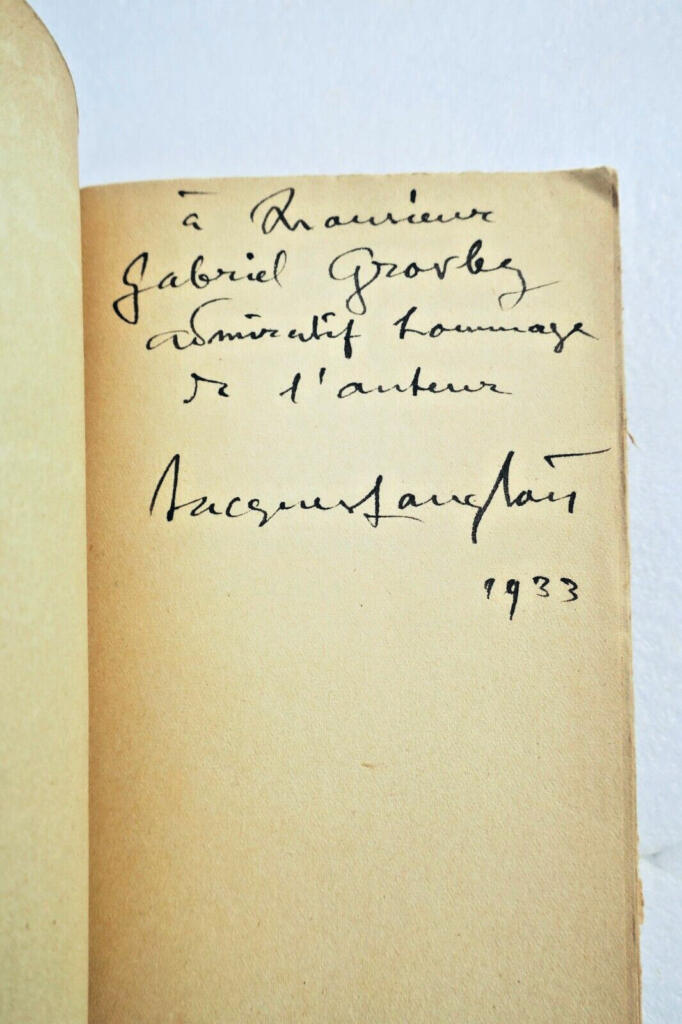 à Monsieur
Gabriel Grovlez
admiratif hommage
de l'auteur
Jacques Langlois
1933